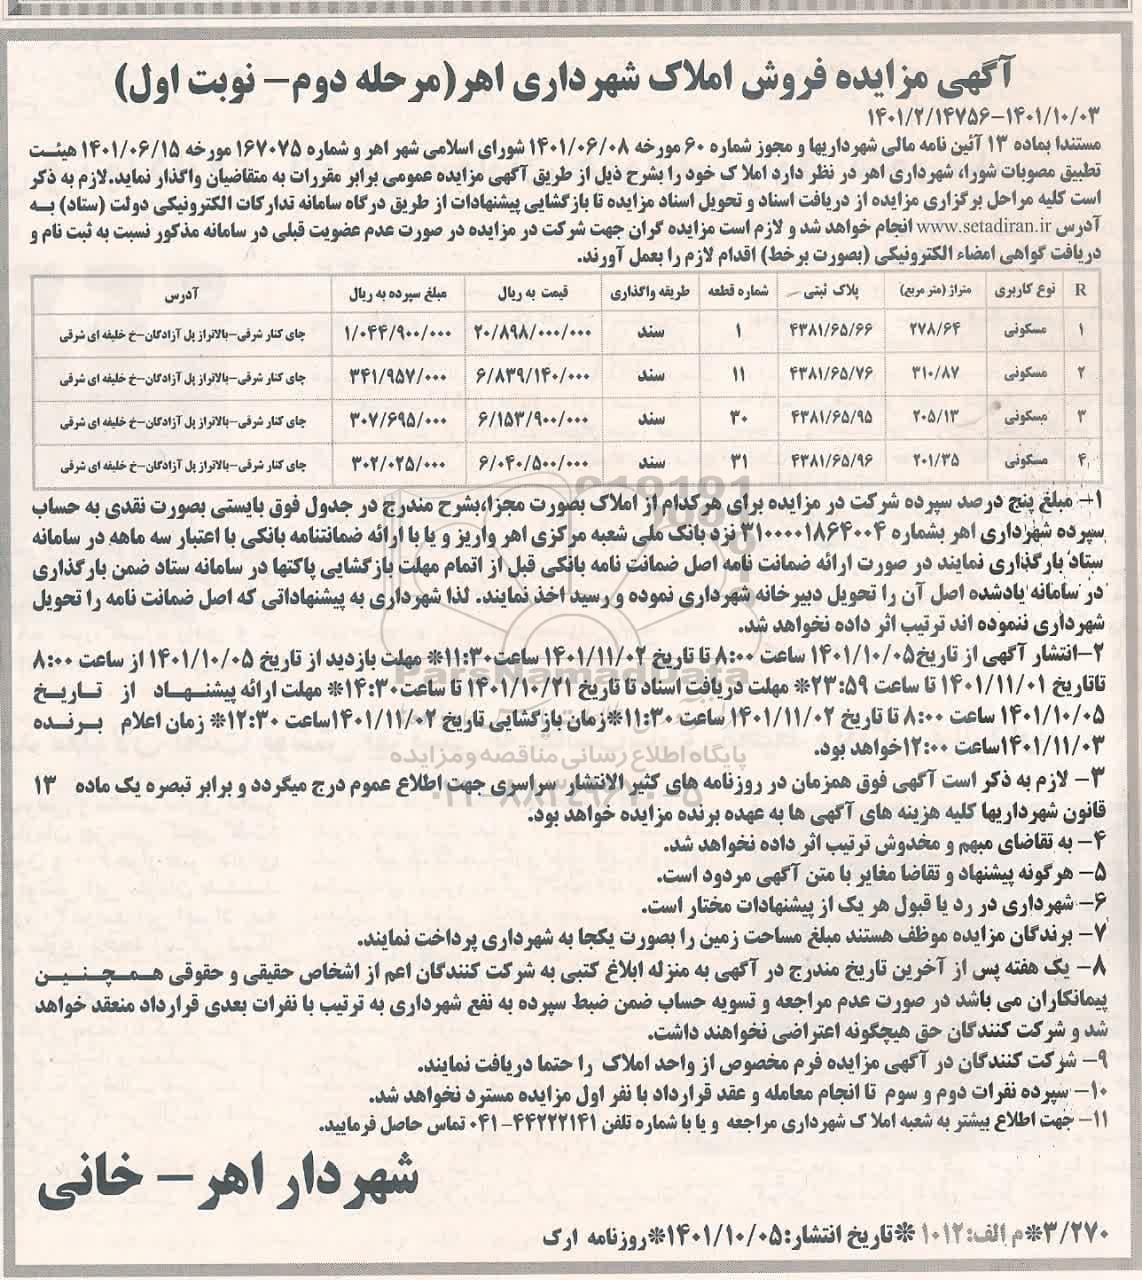 آگهی مزایده فروش املاک شهرداری اهر(مرحله دوم- نوبت اول)
۱۴۰۱/۲/۱۴۷۵۶-۱۴۰۱/۱۰/۰۳
مستندا بماده ۱۳ آئین نامه مالی شهرداریها و مجوز شماره ۶۰ مورخه ۱۴۰۱/۰۶/۰۸ شورای اسلامی شهر اهر و شماره ۱۶۷۰۷۵ مورخه ۱۴۰۱/۰۶/۱۵ هیئت
تطبیق مصوبات شورا، شهرداری اهر در نظر دارد املاک خود را بشرح ذیل از طریق آگهی مزایده عمومی برابر مقررات به متقاضیان واگذار نماید.لازم به ذکر
است کلیه مراحل برگزاری مزایده از دریافت اسناد و تحویل اسناد مزایده تا بازگشایی پیشنهادات از طریق درگاه سامانه تدارکات الکترونیکی دولت (ستاد) به
آدرس www.setadiran.ir انجام خواهد شد و لازم است مزایده گران جهت شرکت در مزایده در صورت عدم عضویت قبلی در سامانه مذکور نسبت به ثبت نام و
دریافت گواهی امضاء الکترونیکی (بصورت برخط) اقدام لازم را بعمل آورند.
R نوع کاربری متراژ (متر مربع) پلاک ثبتی شماره قطعه طریقه واگذاری قیمت به ریال مبلغ سپرده به ریال آدرس
۱ مسکونی ۲۷۸/۶۴ ۴۳۸۱/۶۵/۶۶ ۱ سند ۲۰/۸۹۸/۰۰۰/۰۰۰ ۱/۰۴۴/۹۰۰/۰۰۰ جای کنار شرقی-بالاتراز پل آزادگان-خ خلیفه ای شرقی
۲ مسکونی ۳۱۰/۸۷ ۴۳۸۱/۶۵/۷۶ ۱۱ سند ۶/۸۳۹/۱۴۰/۰۰۰ ۳۴۱/۹۵۷/۰۰۰ جای کنار شرقی-بالاتراز پل آزادگان-خ خلیفه ای شرقی
۳ مسکونی ۲۰۵/۱۳ ۴۳۸۱/۶۵/۹۵ ۳۰ سند ۶/۱۵۳/۹۰۰/۰۰۰ ۳۰۷/۶۹۵/۰۰۰ جای کنار شرقی-بالاتراز پل آزادگان-خ خلیفه ای شرقی
۴ مسکونی ۲۰۱/۳۵ ۴۳۸۱/۶۵/۹۶ ۳۱ سند ۶/۰۴۰/۵۰۰/۰۰۰ ۳۰۲/۰۲۵/۰۰۰ جای کنار شرقی-بالاتراز پل آزادگان-خ خلیفه ای شرقی
۱- مبلغ پنج درصد سپرده شرکت در مزایده برای هرکدام از املاک بصورت مجزا،بشرح مندرج در جدول فوق بایستی بصورت نقدی به حساب
سپرده شهرداری اهر بشماره ۳۱۰۰۰۰۱۸۶۴۰۰۴ نزد بانک ملی شعبه مرکزی اهر واریز و یا با ارائه ضمانتنامه بانکی با اعتبار سه ماهه در سامانه
ستاد بارگذاری نمایند در صورت ارائه ضمانت نامه اصل ضمانت نامه بانکی قبل از اتمام مهلت بازگشایی پاکتها در سامانه ستاد ضمن بارگذاری
در سامانه یادشده اصل آن را تحویل دبیرخانه شهرداری نموده و رسید اخذ نمایند. لذا شهرداری به پیشنهاداتی که اصل ضمانت نامه را تحویل
شهرداری ننموده اند ترتیب اثر داده نخواهد شد.
۲-انتشار آگهی از تاریخ۱۴۰۱/۱۰/۰۵ ساعت ۸:۰۰ تا تاریخ ۱۴۰۱/۱۱/۰۲ ساعت۱۱:۳۰* مهلت بازدید از تاریخ ۱۴۰۱/۱۰/۰۵ از ساعت ۸:۰۰
تاتاریخ ۱۴۰۱/۱۱/۰۱ تا ساعت ۲۳:۵۹* مهلت دریافت اسناد تا تاریخ ۱۴۰۱/۱۰/۲۱ تا ساعت۱۴:۳۰* مهلت ارائه پیشنهاد از تاریخ
۱۴۰۱/۱۰/۰۵ ساعت ۸:۰۰ تا تاریخ ۱۴۰۱/۱۱/۰۲ ساعت ۱۱:۳۰*زمان بازگشایی تاریخ ۱۴۰۱/۱۱/۰۲ساعت ۱۲:۳۰* زمان اعلام برنده
۱۴۰۱/۱۱/۰۳ساعت ۱۲:۰۰خواهد بود.
۳- لازم به ذکر است آگهی فوق همزمان در روزنامه های کثیر الانتشار سراسری جهت اطلاع عموم درج میگردد و برابر تبصره یک ماده ۱۳
قانون شهرداریها کلیه هزینه های آگهی ها به عهده برنده مزایده خواهد بود.
۴- به تقاضای مبهم و مخدوش ترتیب اثر داده نخواهد شد.
۵- هرگونه پیشنهاد و تقاضا مغایر با متن آگهی مردود است.
۶- شهرداری در رد یا قبول هر یک از پیشنهادات مختار است.
۷- برندگان مزایده موظف هستند مبلغ مساحت زمین را بصورت یکجا به شهرداری پرداخت نمایند.
۸- یک هفته پس از آخرین تاریخ مندرج در آگهی به منزله ابلاغ کتبی به شرکت کنندگان اعم از اشخاص حقیقی و حقوقی همچنین
پیمانکاران می باشد در صورت عدم مراجعه و تسویه حساب ضمن ضبط سپرده به نفع شهرداری به ترتیب با نفرات بعدی قرارداد منعقد خواهد
شد و شرکت کنندگان حق هیچگونه اعتراضی نخواهند داشت.
۹- شرکت کنندگان در آگهی مزایده فرم مخصوص از واحد املاک را حتما دریافت نمایند.
۱۰- سپرده نفرات دوم و سوم تا انجام معامله و عقد قرارداد با نفر اول مزایده مسترد نخواهد شد.
۱۱- جهت اطلاع بیشتر به شعبه املاک شهرداری مراجعه و یا با شماره تلفن ۴۴۲۲۲۱۴۱-۰۴۱ تماس حاصل فرمایید.
شهردار اهر - خانی
۳/۲۷۰*م الف:۱۰۱۲ *تاریخ انتشار:۱۴۰۱/۱۰/۰۵*روزنامه ارک
ParsNamadData
پایگاه اطلاع رسانی مناقصه و مزایده